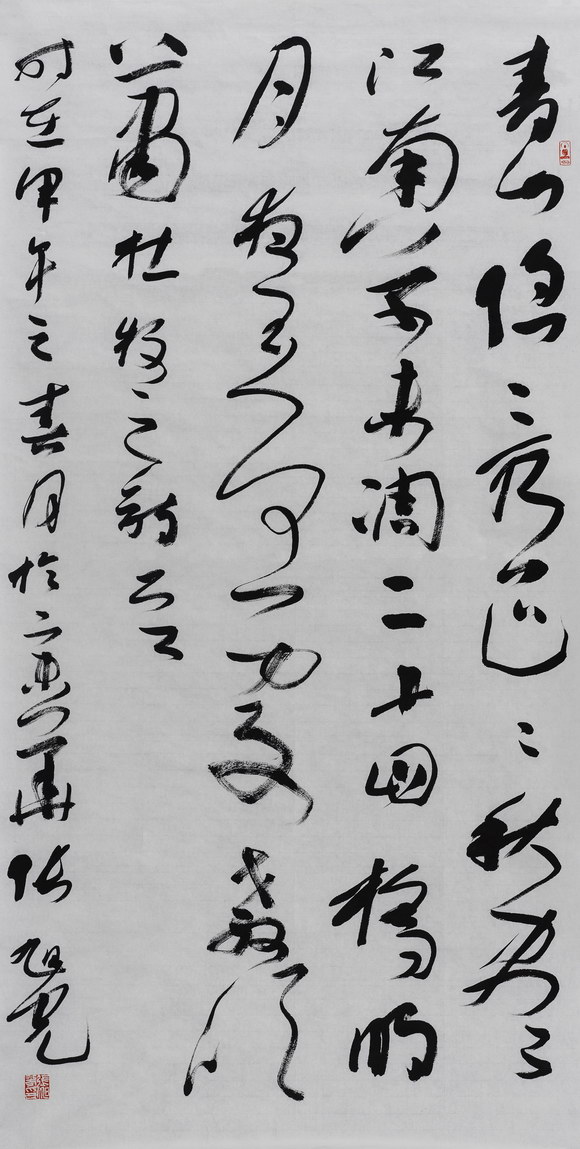 青山隐々水迢々秋尽
江南草未凋二十四桥明
月夜玉人何处教吹
箫杜牧之诗
时在甲午之春月于京华张旭光